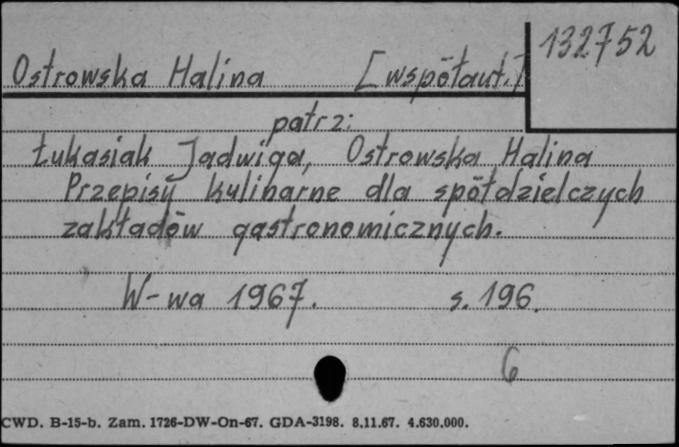 132752
Ostrowska Halina [współaut.]
patrz:
Łukasiak Jadwiga, Ostrowska Halina
Przepisy kulinarne dla spółdzielczych
zakładów gastronomicznych.
W-wa 1967. s. 196.
6
CWD. B-15-b. Zam. 1726-DW-On-67. GDA-3198. 8.11.67. 4.630.000.